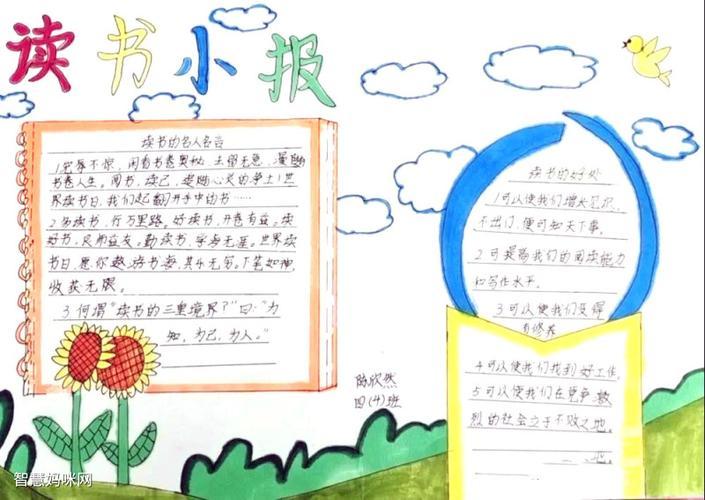 读书小报
读书的名人名言
1.宠辱不惊,闲看书卷奥秘,去留无意,漫
书卷人生。阅书,读己,是心灵的净土!世
界读书日,我们一起翻开手中的书……
2.为读书,行万里路。好读书,开卷有益。读
好书,良师益友。勤读书,学海无涯。世界读
书日,愿你遨游书海,其乐无穷。下笔如神,
收获无限。
3.何谓“读书的三重境界?”曰:“为
知,为己,为人。”
陈欣然
四(4)班
读书的好处
1可以使我们增长见识,
不出门,便可知天下事。
2可提高我们的阅读能力
和写作水平。
3可以使我们变得
有修养
4可以使我们找到好工作。
5可以使我们在竞争激
烈的社会立于不败之地。
智慧妈咪网